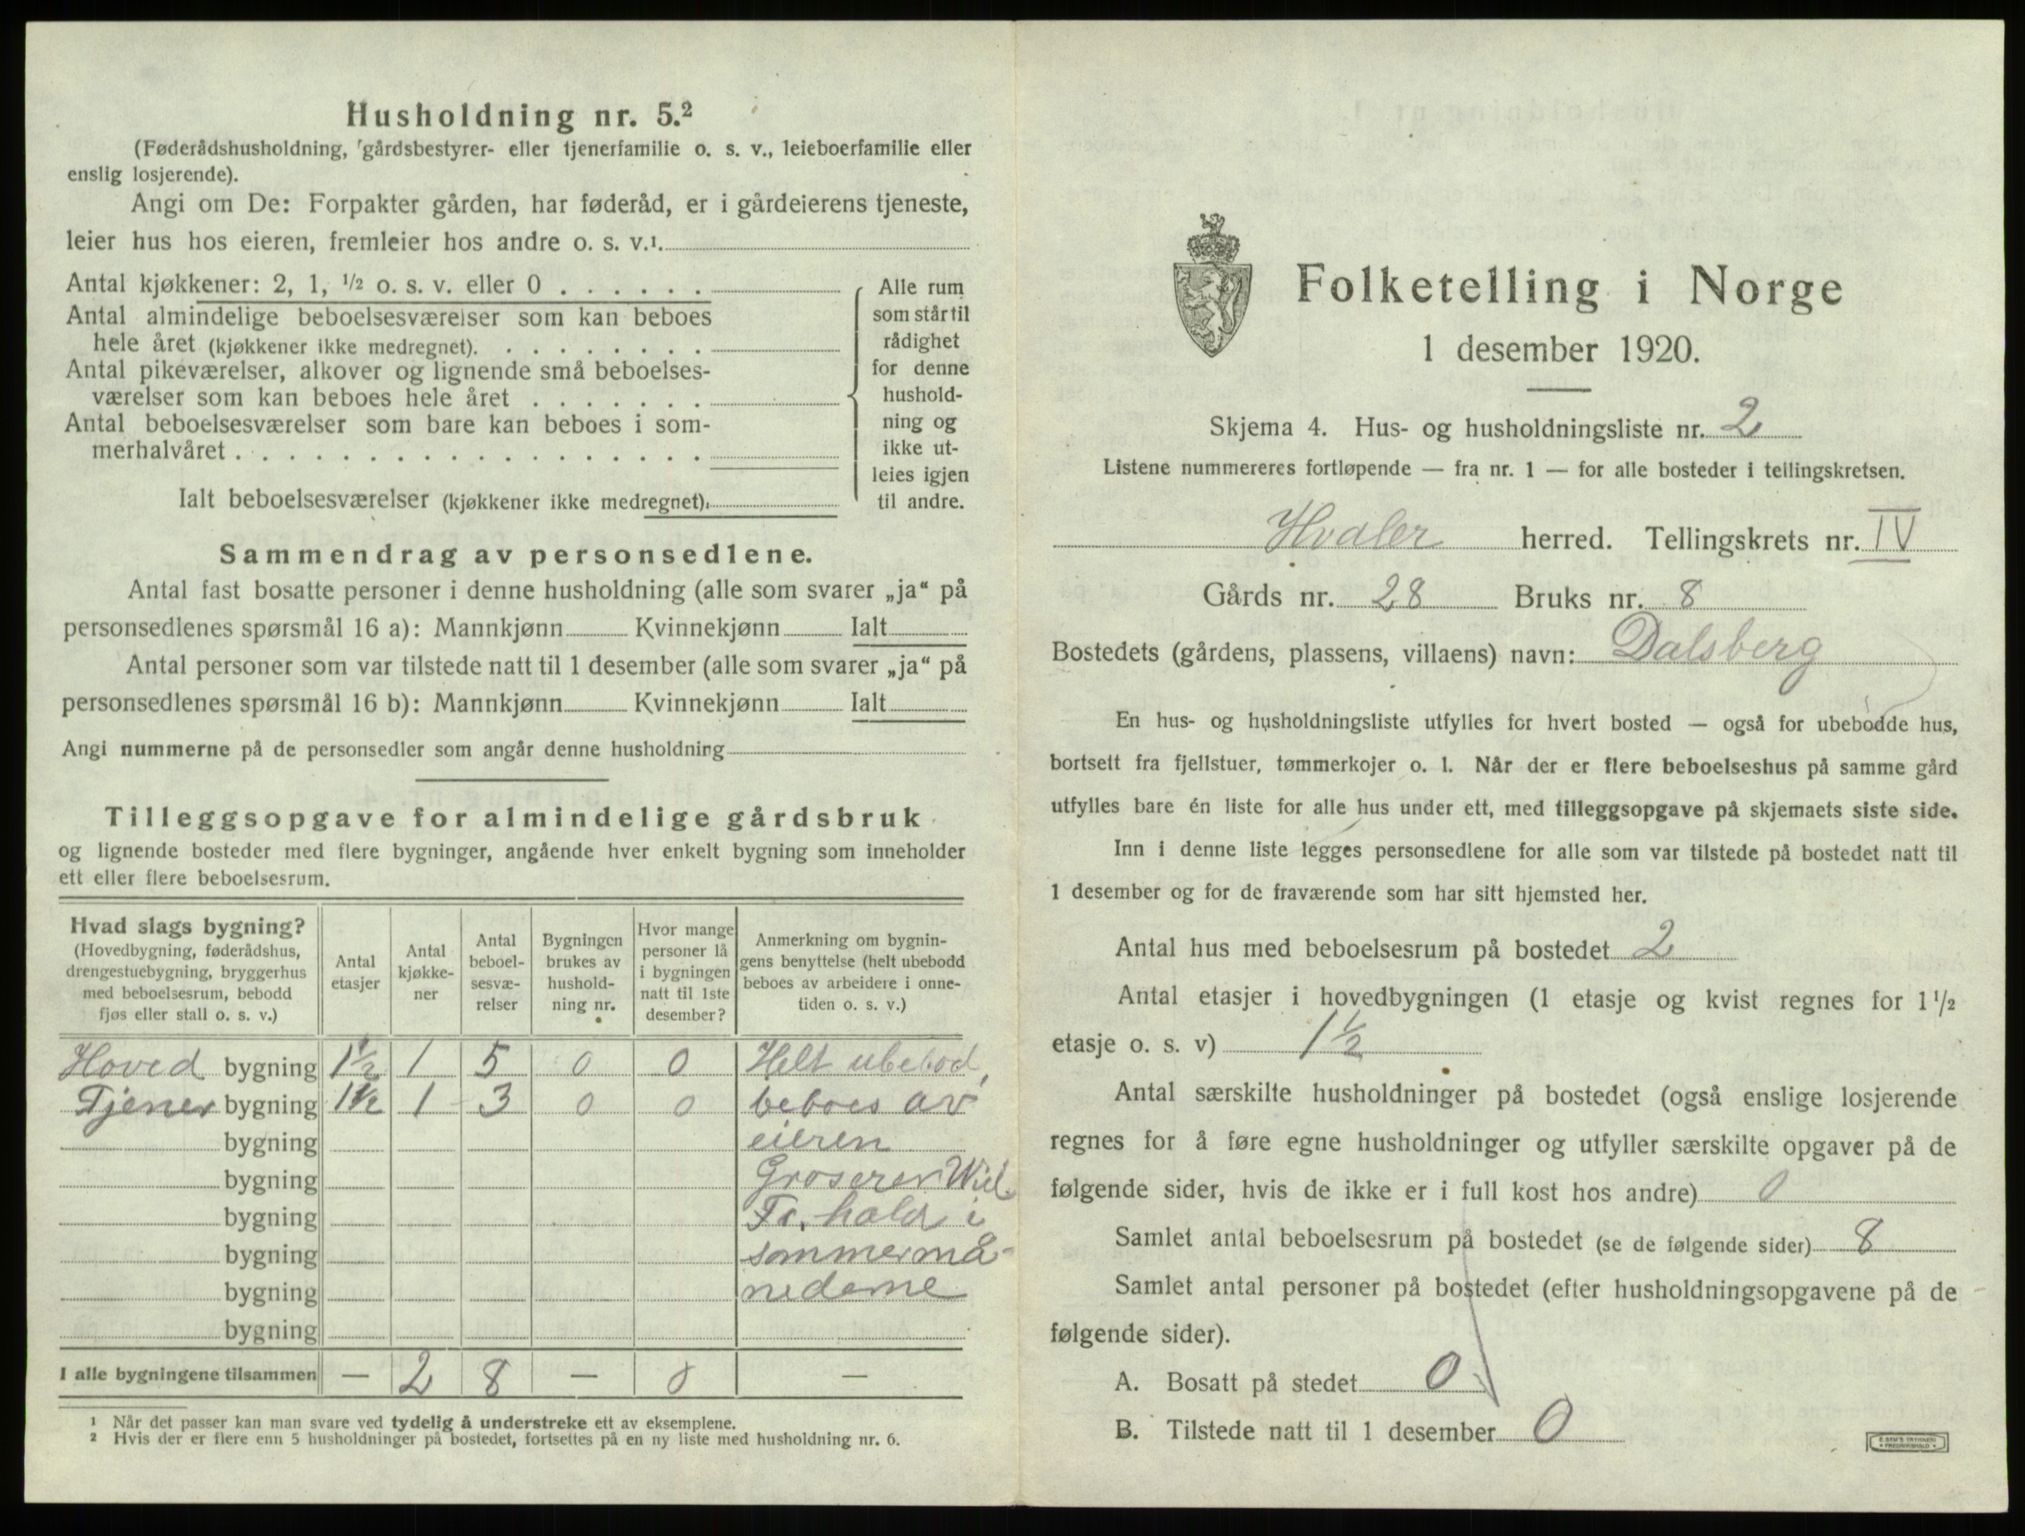 Husholdning nr. 5.²
(Føderådshusholdning, gårdsbestyrer- eller tjenerfamilie o. s. v., leieboerfamilie eller
enslig losjerende).
Angi om De: Forpakter gården, har føderåd, er i gårdeierens tjeneste,
leier hus hos eieren, fremleier hos andre o. s. v.¹
Antal kjøkkener: 2, 1, ½ o. s. v. eller 0 . . . . . .
Antal almindelige beboelsesværelser som kan beboes
hele året (kjøkkener ikke medregnet). . . . . . . . .
Antal pikeværelser, alkover og lignende små beboelses-
værelser som kan beboes hele året . . . . . . .
Antal beboelsesværelser som bare kan beboes i som-
merhalvåret . . . . . . . . . . . . . . . . . .
Ialt beboelsesværelser (kjøkkener ikke medregnet).
Alle rum
som står til
rådighet
for denne
hushold-
ning og
ikke ut-
leies igjen
til andre.
Sammendrag av personsedlene.
Antal fast bosatte personer i denne husholdning (alle som svarer „ja“ på
personsedlenes spørsmål 16 a): Mannkjønn Kvinnekjønn Ialt
Antal personer som var tilstede natt til 1 desember (alle som svarer „ja“ på
personsedlenes spørsmål 16 b): Mannkjønn Kvinnekjønn Ialt
Angi nummerne på de personsedler som angår denne husholdning
Tilleggsopgave for almindelige gårdsbruk
og lignende bosteder med flere bygninger, angående hver enkelt bygning som inneholder
ett eller flere beboelsesrum.
Hvad slags bygning?
(Hovedbygning, føderådshus,
drengestuebygning, bryggerhus
med beboelsesrum, bebodd
fjøs eller stall o. s. v.)
Antal
etasjer
Antal
kjøkke-
ner
Antal
beboel-
sesvæ-
relser
Bygningen
brukes av
hushold-
ning nr.
Hvor mange
personer lå
i bygningen
natt til 1ste
desember?
Anmerkning om bygnin-
gens benyttelse (helt ubebodd
beboes av arbeidere i onne-
tiden o. s. v.)
Hoved bygning 1½ 1 5 0 0 Helt ubebod,
Tjener bygning 1½ 1 3 0 0 beboes av
bygning eieren
bygning Groserer Wiel
bygning Fr.hald i
bygning sommermå-
bygning nederne
bygning
I alle bygningene tilsammen — 2 8 — 0 —
¹ Når det passer kan man svare ved tydelig å understreke ett av eksemplene.
² Hvis der er flere enn 5 husholdninger på bostedet, fortsettes på en ny liste med husholdning nr. 6.
Folketelling i Norge
1 desember 1920.
Skjema 4. Hus- og husholdningsliste nr. 2
Listene nummereres fortløpende — fra nr. 1 — for alle bosteder i tellingskretsen.
Hvaler herred. Tellingskrets nr. IV
Gårds nr. 28 Bruks nr. 8
Bostedets (gårdens, plassens, villaens) navn: Dalsberg
En hus- og husholdningsliste utfylles for hvert bosted — også for ubebodde hus,
bortsett fra fjellstuer, tømmerkojer o. l. Når der er flere beboelseshus på samme gård
utfylles bare én liste for alle hus under ett, med tilleggsopgave på skjemaets siste side.
Inn i denne liste legges personsedlene for alle som var tilstede på bostedet natt til
1 desember og for de fraværende som har sitt hjemsted her.
Antal hus med beboelsesrum på bostedet 2
Antal etasjer i hovedbygningen (1 etasje og kvist regnes for 1½
etasje o. s. v) 1½
Antal særskilte husholdninger på bostedet (også enslige losjerende
regnes for å føre egne husholdninger og utfyller særskilte opgaver på de
følgende sider, hvis de ikke er i full kost hos andre) 0
Samlet antal beboelsesrum på bostedet (se de følgende sider) 8
Samlet antal personer på bostedet (efter husholdningsopgavene på de
følgende sider).
A. Bosatt på stedet 0
B. Tilstede natt til 1 desember 0